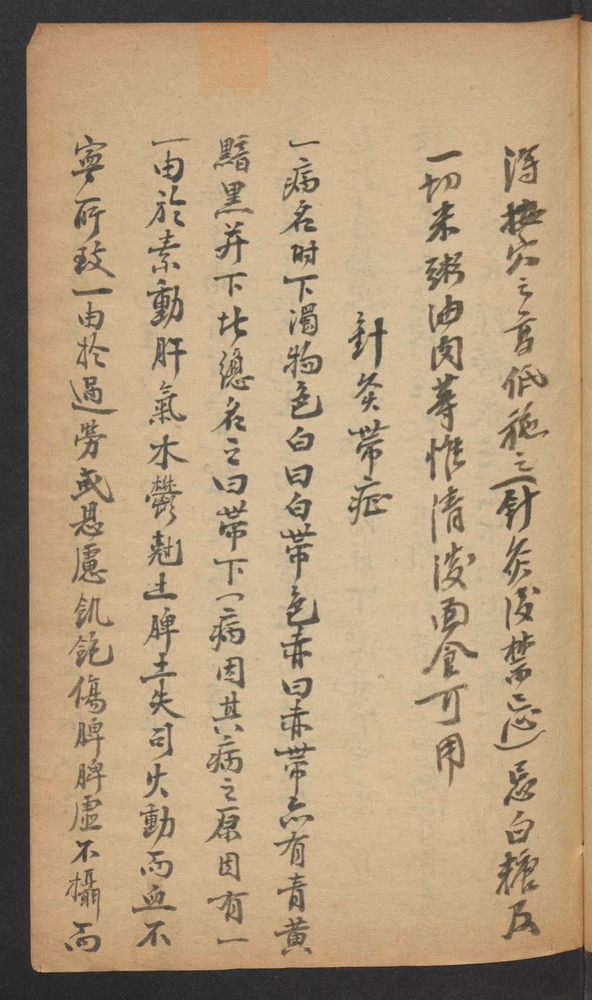 得撫穴之高低穏之一針灸後禁忌忌白糖及
一切米粥油肉等惟清淡面食可用
針灸帶症
一病名时下濁物色白曰白帶色赤曰赤帶亦有青黄
黯黑并下比總名之曰帶下一病因其病之原因有一
一由於素動肝氣木鬱尅土脾土失司火動而血不
寧所致一由於過勞或思慮飢飽傷脾脾虚不攝而